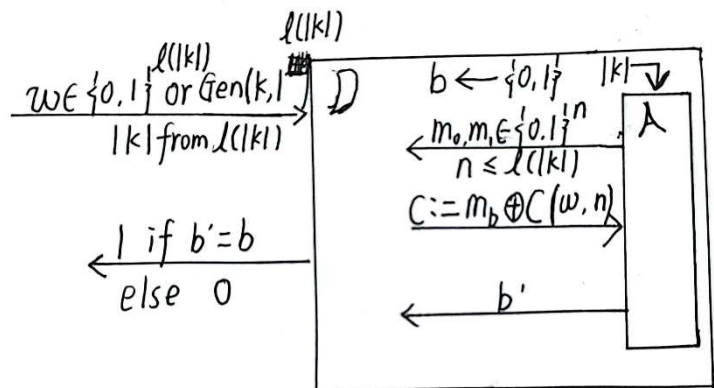 l(|k|)
w∈{0,1}^l(|k|) or Gen(k,1
|k| from l(|k|)
D
b ← {0,1}
|k|
A
m₀,m₁∈{0,1}^n
n ≤ l(|k|)
C:=m_b ⊕ C(w,n)
1 if b'=b
else 0
b'